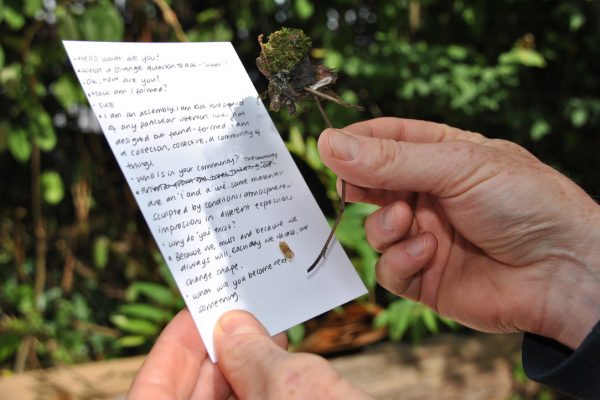 · Hello what are you?
· What a strange question to ask - 'what'?
· OK, How are you?
· How am I formed?
· Sure
· I am an assembly. I am
of any particular intention. I was not
designed but found - formed. I am
a collection, collective, a community of
things.
· Who is in your community?
are an 'i' and a 'we'. same materials
sculpted by conditions: atmospheres:
impression in different expression
· Why do you exist?
· Because we must and because we
always will. Each day we    we
change shape.
· What will you become next?
something